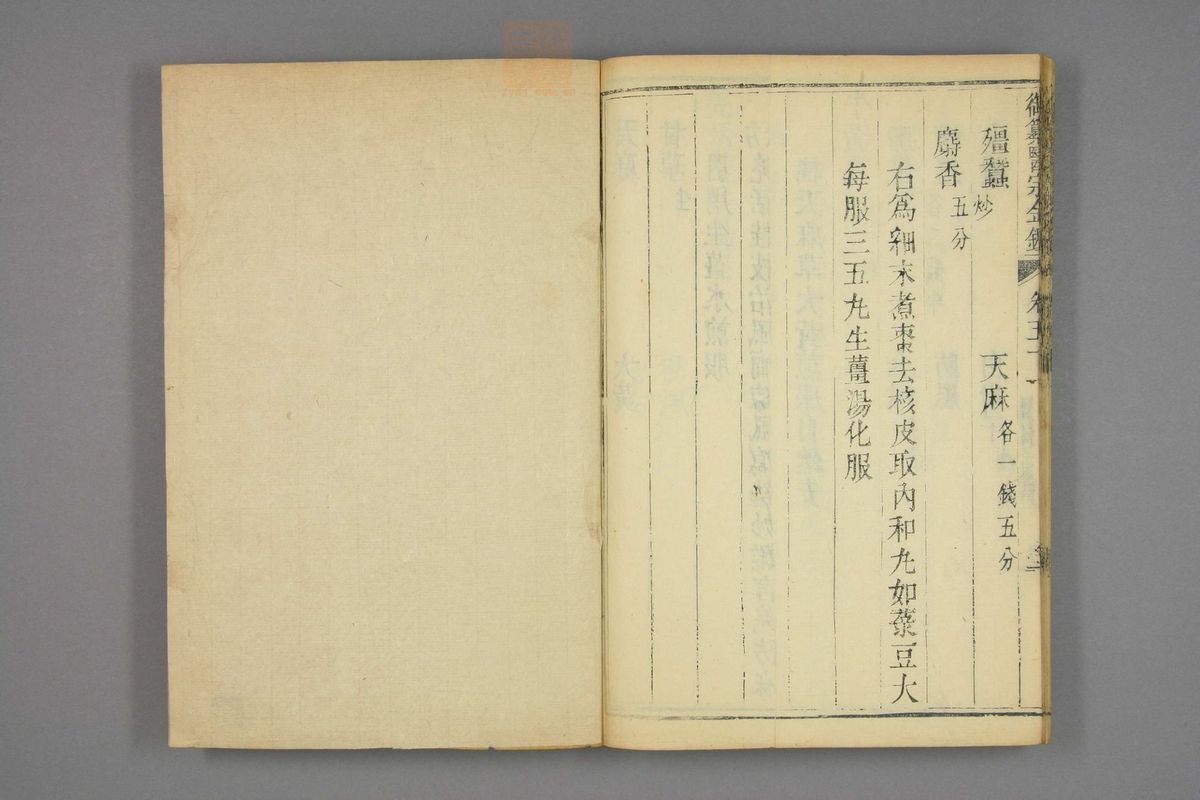 御纂醫宗金鑑 卷五十一
殭蠶炒 天麻各一錢五分
麝香五分
右爲細末煮棗去核皮取肉和丸如菉豆大
每服三五丸生薑湯化服